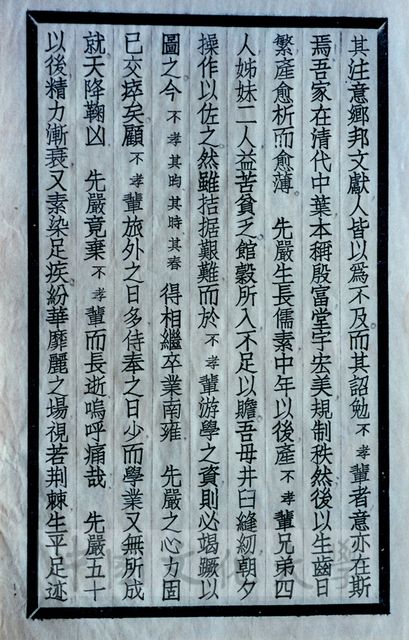 其注意鄉邦文獻人皆以爲不及而其詔勉不孝輩者意亦在斯
焉吾家在清代中葉本稱殷富堂宇宏美規制秩然後以生齒日
繁產愈析而愈薄　先嚴生長儒素中年以後產不孝輩兄弟四
人姊妹二人益苦貧乏館穀所入不足以贍吾母井臼縫紉朝夕
操作以佐之然雖拮据艱難而於不孝輩游學之資則必竭蹶以
圖之今不孝其昀其時其春得相繼卒業南雍　先嚴之心力固
已交瘁矣顧不孝輩旅外之日多侍奉之日少而學業又無所成
就天降鞠凶　先嚴竟棄不孝輩而長逝嗚呼痛哉　先嚴五十
以後精力漸衰又素染足疾紛華靡麗之場視若荆棘生平足迹